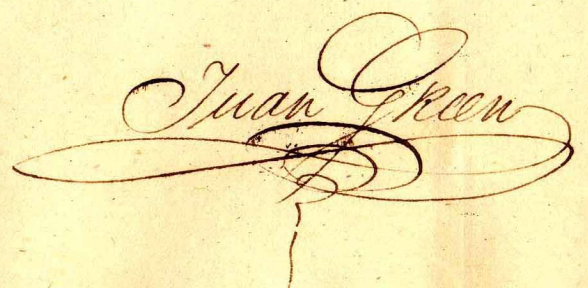 Juan Green